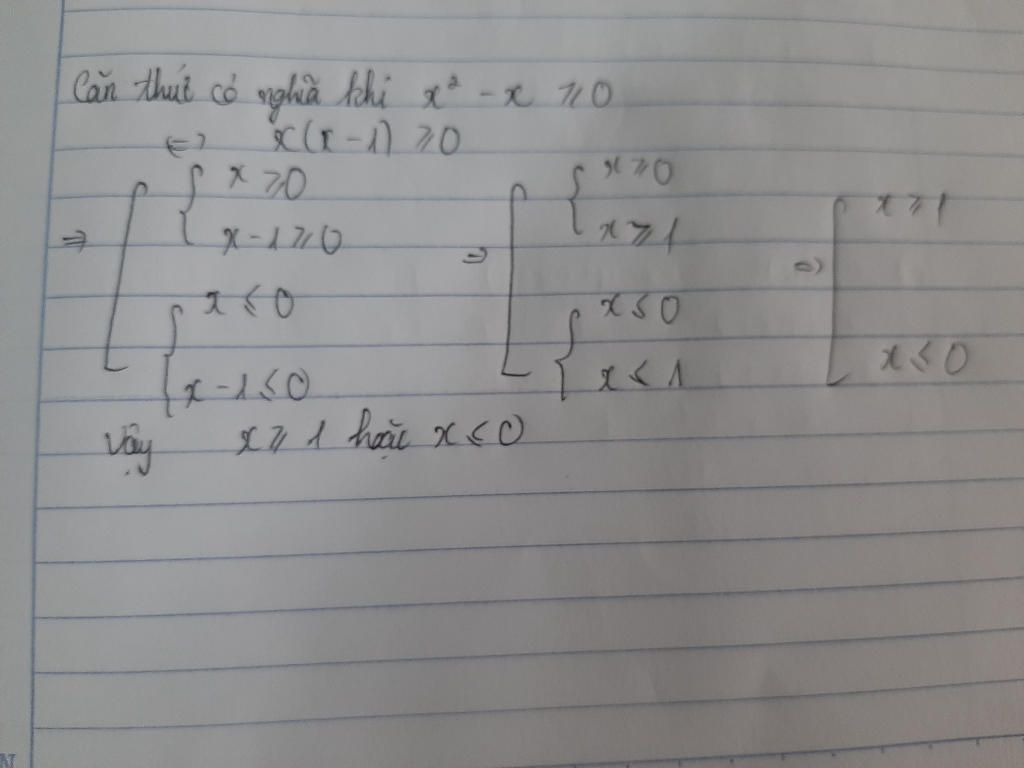 Căn thức có nghĩa khi x² - x ≥ 0
<=> x(x - 1) ≥ 0
=> [ { x ≥ 0 => [ { x ≥ 0 => [ x ≥ 1
x - 1 ≥ 0 x ≥ 1
{ x ≤ 0 { x ≤ 0 x ≤ 0
x - 1 ≤ 0 x ≤ 1
Vậy x ≥ 1 hoặc x ≤ 0